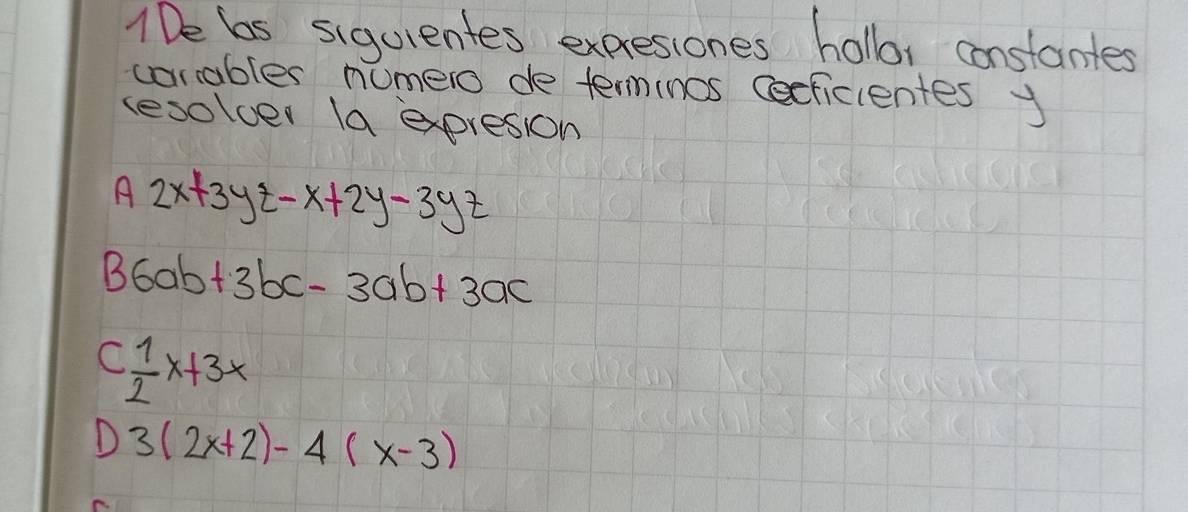 1 De las siguientes expresiones hallar constantes
variables número de terminos coeficientes y
resolver la expresion
A 2x+3yz-x+2y-3yz
B 6ab+3bc-3ab+3ac
C 1/2 x+3x
D 3(2x+2)-4(x-3)